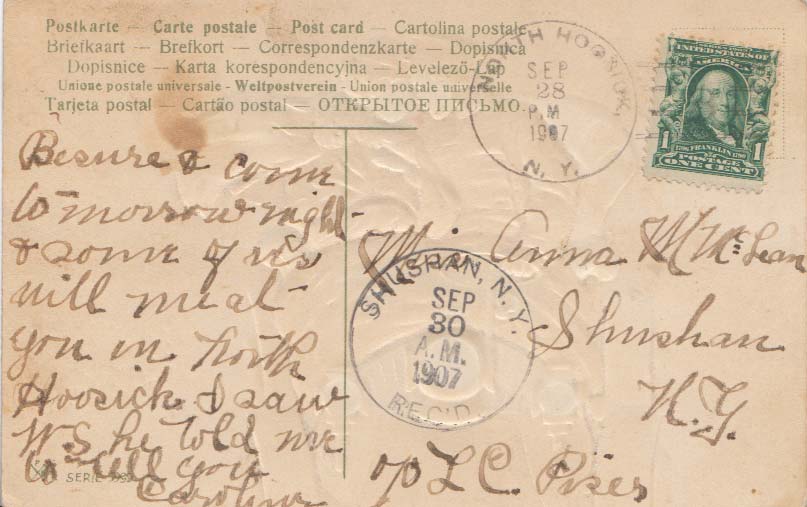 Postkarte — Carte postale — Post card — Cartolina postale
Briefkaart — Brefkort — Correspondenzkarte — Dopisnica
Dopisnice — Karta korespondencyjna — Levelező-Lap
Unione postale universale - Weltpostverein - Union postale universelle
Tarjeta postal — Cartão postal — ОТКРЫТОЕ ПИСЬМО.
NORTH HOOSICK,
SEP
28
P.M
1907
N. Y.
UNITED STATES OF
AMERICA
1 1706 FRANKLIN 1790 1
POSTAGE
ONE CENT
Besure & come
tomorrow night
& some of us
will meat
you in North
Hoosick I saw
WS he told me
to tell you
Caroline
SERIE
SHUSHAN, N.Y.
SEP
30
A.M.
1907
REC'D.
Anna M McLean
Shushan
N.Y.
L C Piser